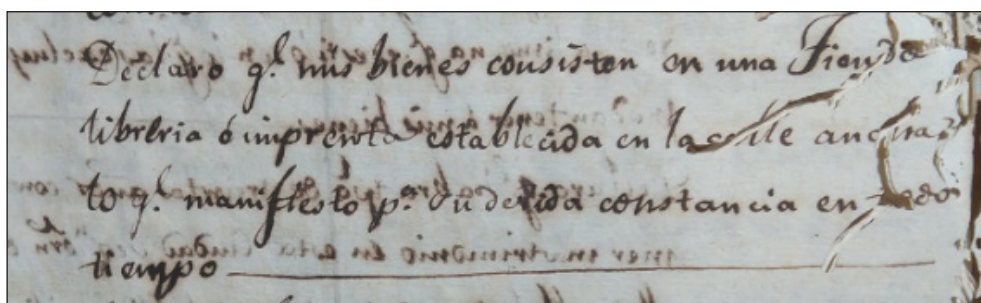 Declaro q.e mis bienes consisten en una Tienda
libreria é imprenta establecida en la calle ancha
lo q.e manifiesto p.a su devida constancia en todo
tiempo